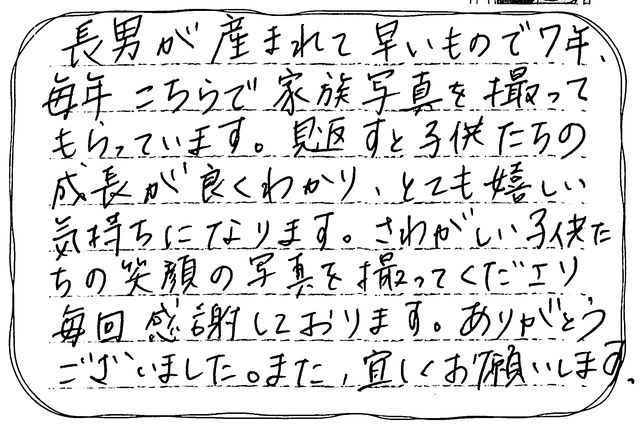 長男が産まれて早いもので7年、
毎年こちらで家族写真を撮って
もらっています。見返すと子供たちの
成長が良くわかり、とても嬉しい
気持ちになります。さわがしい子供た
ちの笑顔の写真を撮ってくださり
毎回感謝しております。ありがとう
ございました。また、宜しくお願いします。